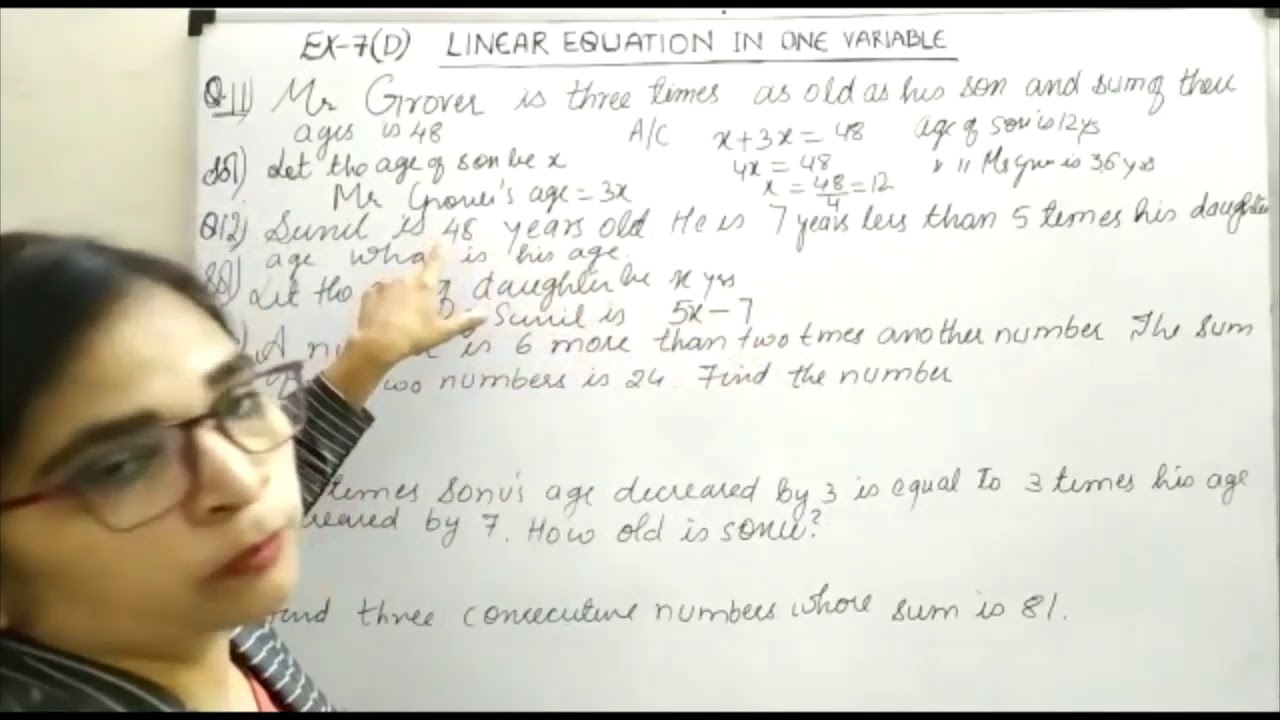 EX-7(D) LINEAR EQUATION IN ONE VARIABLE
Q-11) Mr Grover is three times as old as his son and sum of their
ages is 48 A/C x+3x = 48 age of son is 12 ys
Sol) Let the age of son be x 4x = 48 " " Mr Grover is 36 yrs
Mr Grover's age = 3x x = 48/4 = 12
Q12) Sunil is 48 years old He is 7 years less than 5 times his daughter
age what is his age.
Sol) Let the daughter be x yrs
Sunil is 5x-7
A is 6 more than two times another number The sum
two numbers is 24. Find the number
times Sonu's age decreased by 3 is equal to 3 times his age
by 7. How old is sonu?
find three consecutive numbers whose sum is 81.